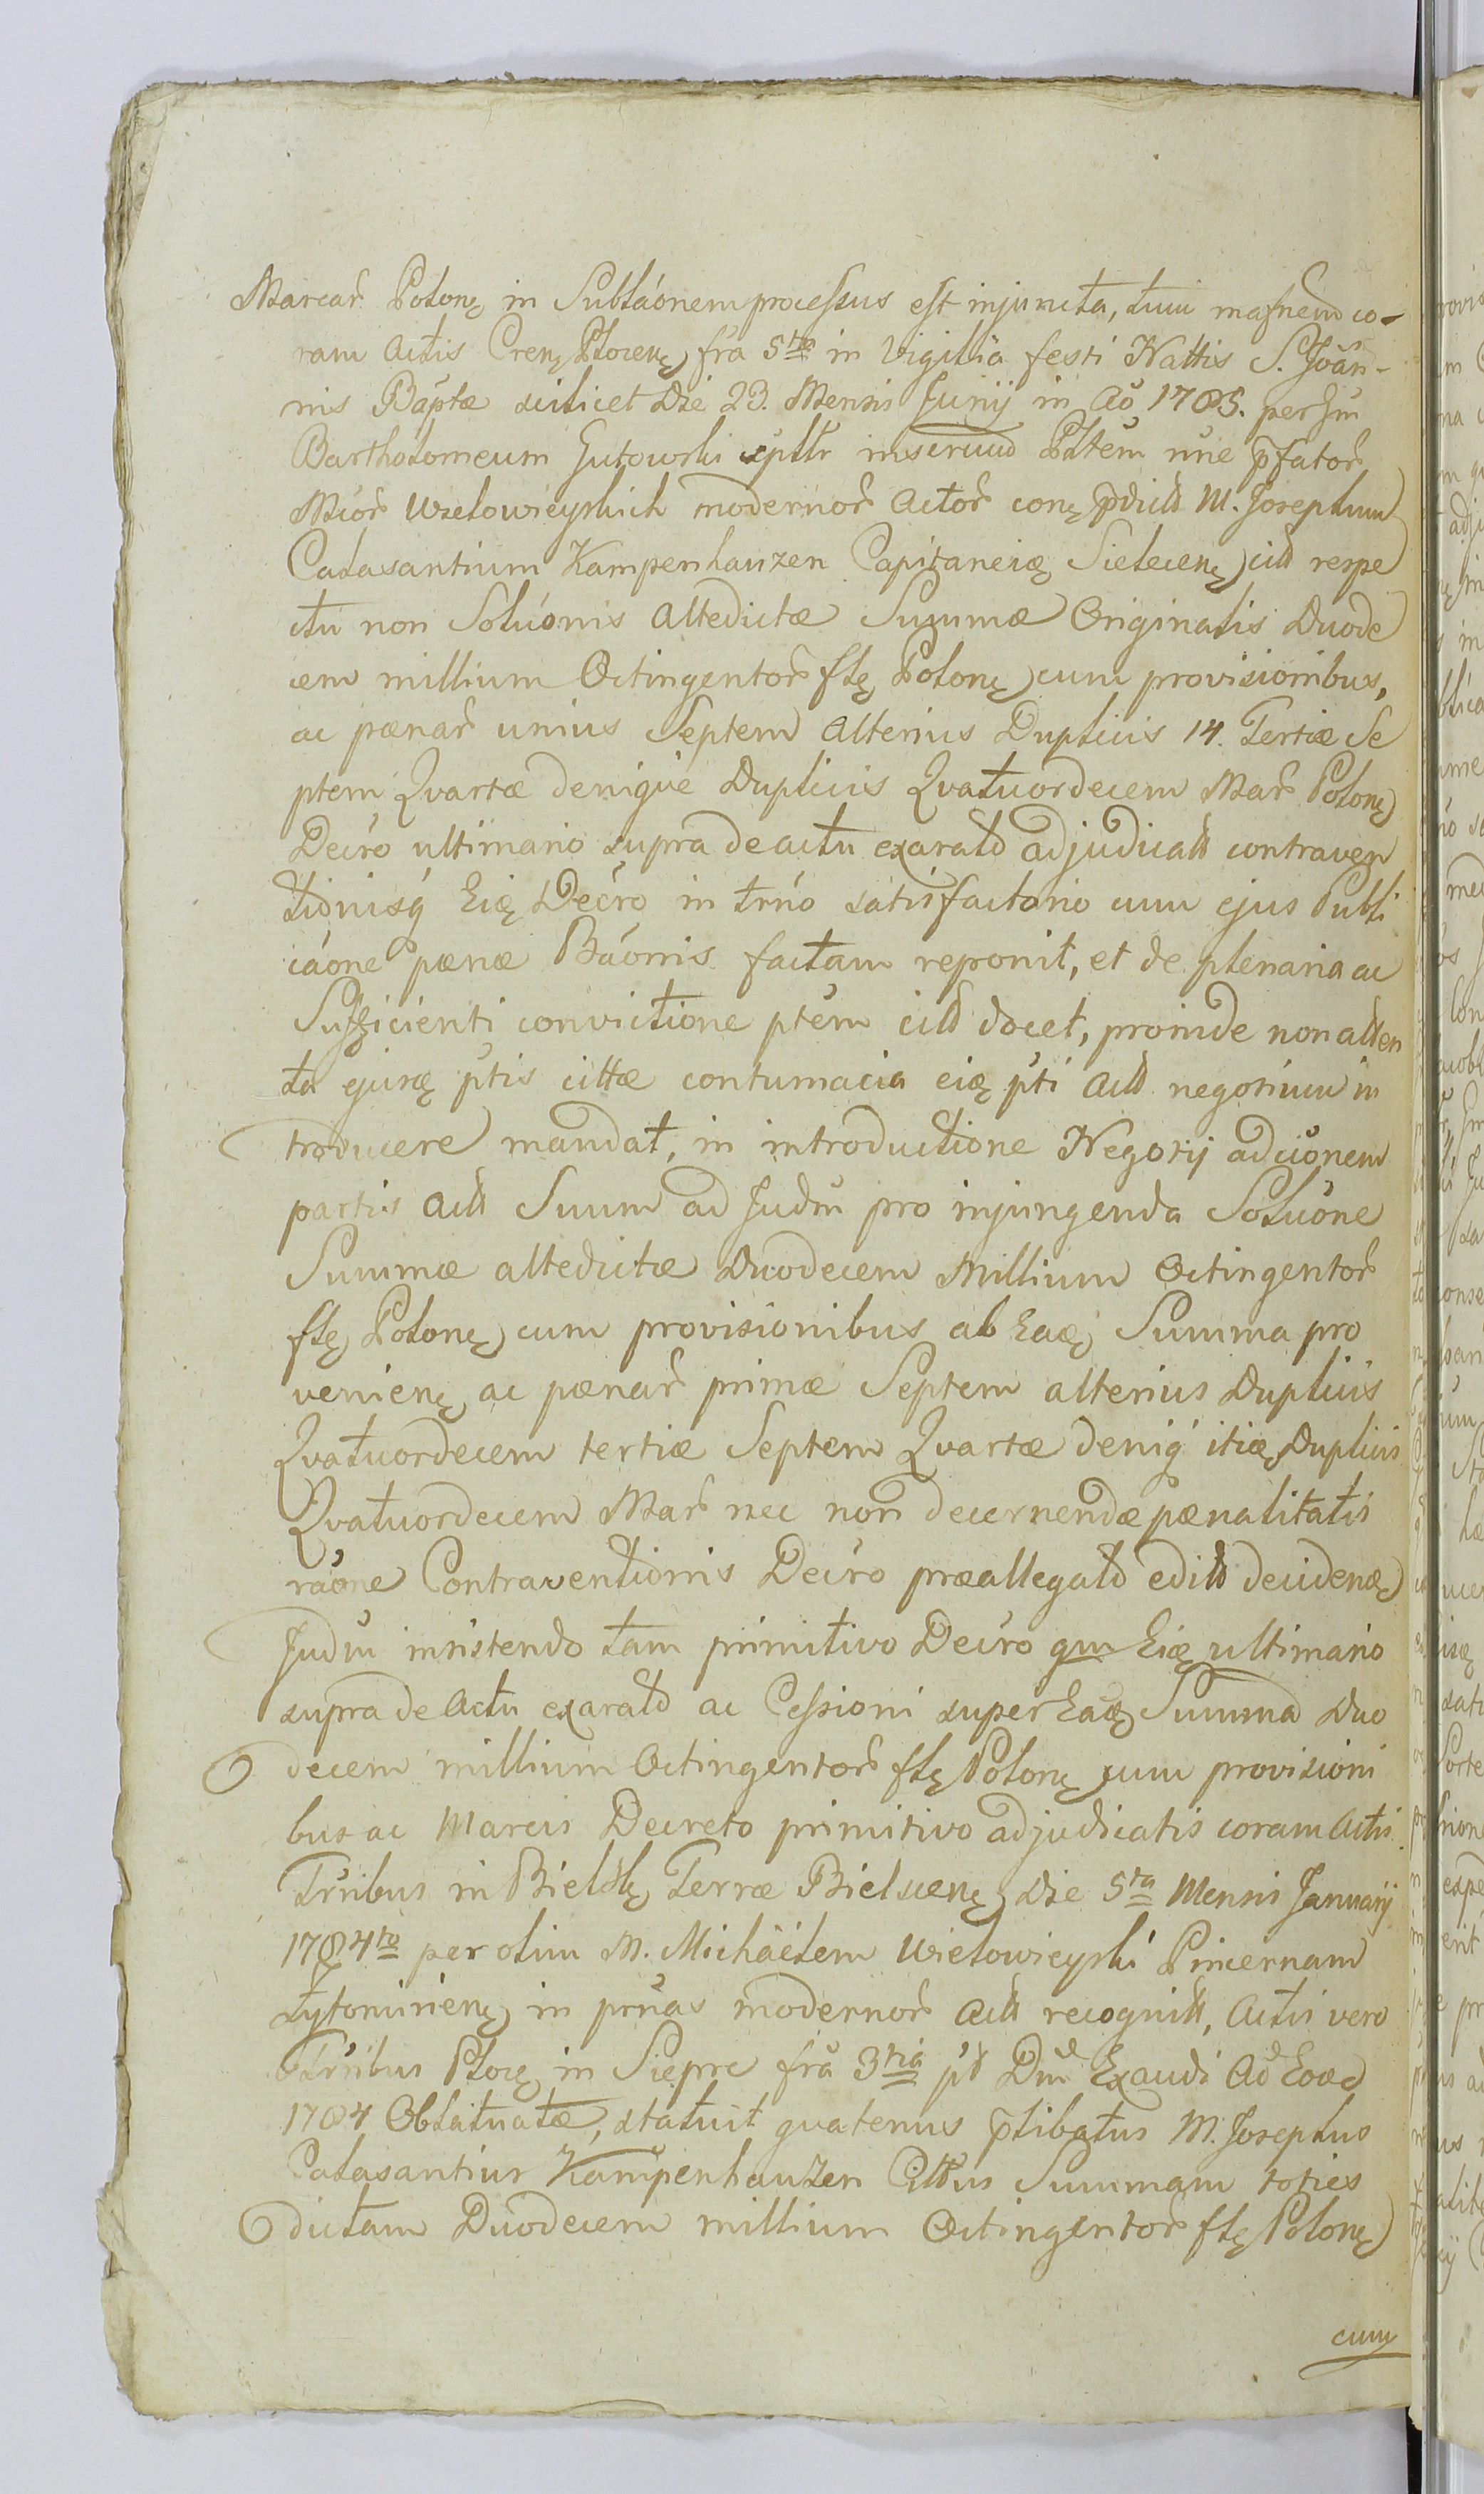 Marcar̃ Polonę in Subláonem processus est injuncta, tum mafnem̃ co-
ram Actis Crenę Plocenę fra 5ta in Vigilia festi Nattis S. Joan-
nis Bapta scilicet Die 23. Mensis Junij in Ao 1785. per Jm
Bartholomeum Gutowski spltr inservien Ptem nne p̃fator̃
Mcor̃ Wielowieyskich modernor̃ Actor̃ conę p̃dictt M. Josephum
Calasantium Kampenhauzen Capitaneię Sielecenę citt respe
ctu non Solúonis Altedictæ Summæ Originalis Duode
cem millium Octingentor̃ flę Polonę cum provisionibus,
ac pænar̃ unius Septem Alterius Duplicis 14. Tertiæ Se
ptem Qvartæ deniqúe Duplicis Qvatuordecem Mar̃ Polonę
Decro ultimario supra de actu exaratt adjudicatt contraven
tionisq́ Eię Decro in trno satisfactorio cum ejus Publi
cáone pænæ Báonis factam reponit, et de plenaria ac
Sufficienti convictione ptem citt docet, proinde non atten
ta ejusę ptis cittæ contumacia eię pti Actt negotium in
troducere mandat, in introductione Negotij ad cúonem
partis Actt Suum ad Judm pro injungenda Solúone
Summæ altedictæ Duodecem Millium Octingentor̃
flę Polonę cum provisionibus ab Eaę Summa pro
venienę ac pænar̃ primæ Septem alterius Duplicis
Qvatuordecem tertiæ Septem Qvartæ deniq́ itię Duplicis
Qvatuordecem Mar̃ nec non decernendæ pænalitatis
ráone Contraventionis Decro præallegatt editt decidenę
Judm insistendo tam primitivo Decro qm Eię ultimario
supra de Actu exaratt ac Cessioni super Eaę Summa Duo
decem millium Octingentor̃ flę Polonę cum provisioni
bus ac Marcis Decreto primitivo adjudicatis coram Actis
Trribus in Bielskę Terræ Bielscenę Die 5ta Mensis Januarij
1784to per olim M. Michäelem Wielowieyski Pincernam
Żytomirienę in prnas modernor̃ Actt recognitt, Actis vero
Trribus Plocę in Sieprc fra 3tia pt Dm Exaudi Ao Eoę
1784 Oblatuatæ, statuit quatenus p̃libatus M. Josephus
Calasantius Kampenhauzen Cittus Summam toties
dictam Duodecem millium Octingentor̃ flę Polonę
cum